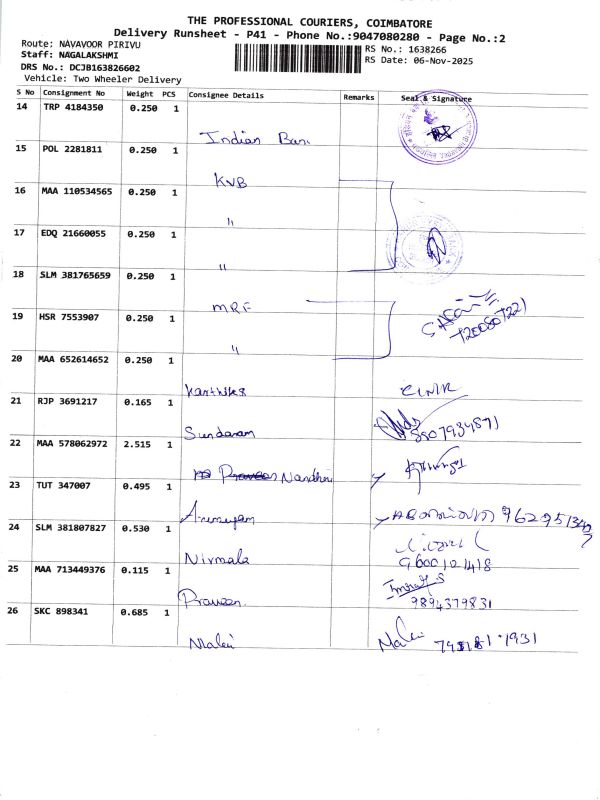 THE PROFESSIONAL COURIERS, COIMBATORE
Delivery Runsheet - P41 - Phone No.:9047080280 - Page No.:2
Route: NAVAVOOR PIRIVU
Staff: NAGALAKSHMI
DRS No.: DCJB163826602
Vehicle: Two Wheeler Delivery
RS No.: 1638266
RS Date: 06-Nov-2025
S No Consignment No Weight PCS Consignee Details Remarks Seal & Signature
14 TRP 4184350 0.250 1
Indian Ban
15 POL 2281811 0.250 1
KVB
16 MAA 110534565 0.250 1
"
17 EDQ 21660055 0.250 1
"
18 SLM 381765659 0.250 1
MRF
19 HSR 7553907 0.250 1
"
20 MAA 652614652 0.250 1
Karthika
21 RJP 3691217 0.165 1
Sundaram
22 MAA 578062972 2.515 1
Nandhini
23 TUT 347007 0.495 1
24 SLM 381807827 0.530 1
Nirmala 9600101418
25 MAA 713449376 0.115 1
Praveen 9894379831
26 SKC 898341 0.685 1
Malai